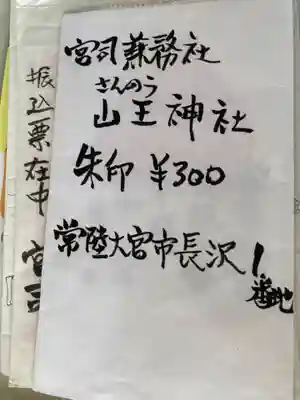 宮司兼務社
さんのう
山王神社
朱印 ¥300
常陸大宮市長沢1番地
振込票在中
宮司